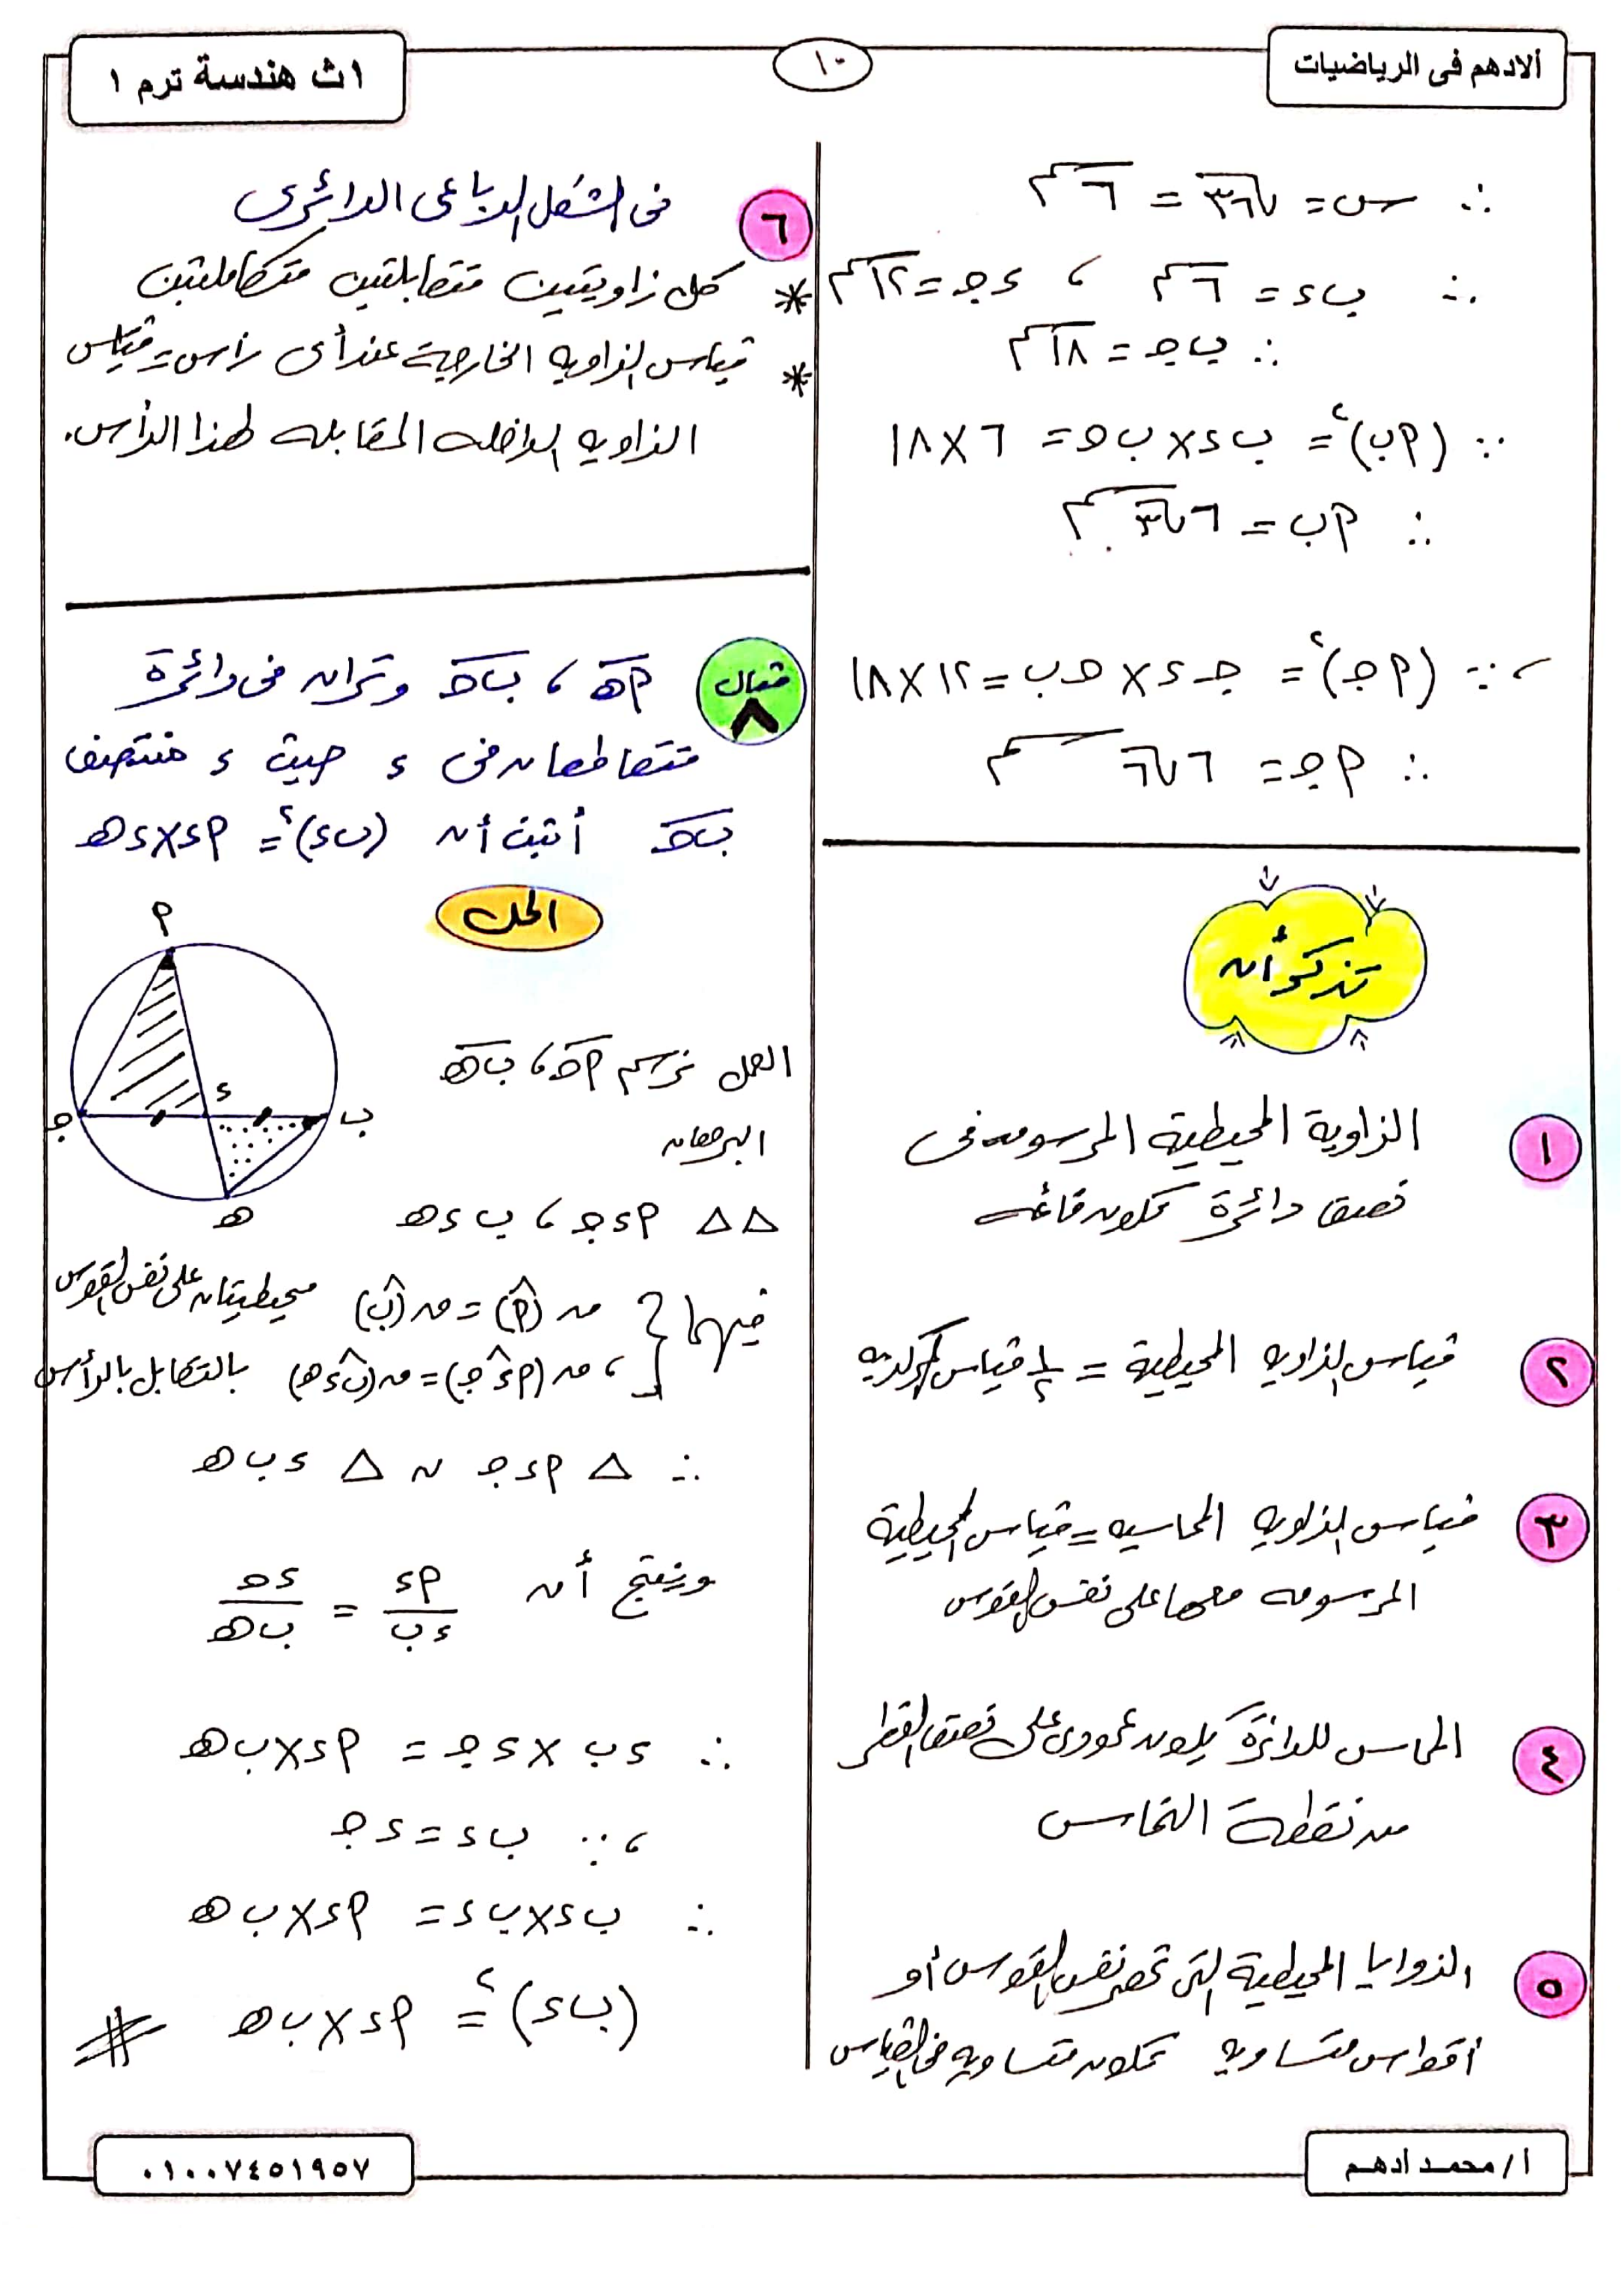 ألادهم فى الرياضيات
١٠
١ث هندسة ترم ١
∴ س = √٣٦ = ٦ سم
∴ ب ء = ٦ سم ، ء جـ = ١٢ سم
∴ ب جـ = ١٨ سم
∵ (أ ب)² = ب ء × ب جـ = ٦ × ١٨
∴ أ ب = ٦√٣ سم
، ∵ (أ جـ)² = جـ ء × جـ ب = ١٢ × ١٨
∴ أ جـ = ٦√٦ سم
تذكر أن
١ الزاوية المحيطية المرسومة فى
نصف دائرة تكون قائمة
٢ قياس الزاويه المحيطية = ١/٢ قياس المركزيه
٣ قياس الزاويه المماسيه = قياس المحيطية
المرسومه معها على نفس القوس
٤ المماس للدائرة يكون عمودى على نصف القطر
من نقطة التماس
٥ الزوايا المحيطية التى تحصر نفس القوس أو
أقواس متساويه تكون متساويه فى القياس
٦ فى الشكل الرباعى الدائرى
* كل زاويتين متقابلتين متكاملتين
* قياس الزاويه الخارجية عند أى رأس = قياس
الزاويه الداخله المقابله لهذا الرأس.
مثال ٨ أ هـ ، ب جـ وتران فى دائرة
متقاطعان فى ء حيث ء منتصف
ب جـ أثبت أن (ب ء)² = أ ء × ء هـ
الحل
أ
ء
ب
جـ
هـ
العمل نرسم أ جـ ، ب هـ
البرهان
△△ أ ء جـ ، ب ء هـ
فيهما { ق(أ) = ق(ب) محيطيتان على نفس القوس
، ق(أ ء جـ) = ق(ب ء هـ) بالتقابل بالرأس
∴ △ أ ء جـ ~ △ ء ب هـ
وينتج أن أ ء / ء ب = ء جـ / ب هـ
∴ ء ب × ء جـ = أ ء × ب هـ
، ∵ ب ء = ء جـ
∴ ب ء × ب ء = أ ء × ب هـ
(ب ء)² = أ ء × ب هـ #
أ/ محمد ادهم
٠١٠٠٧٤٥١٩٥٧